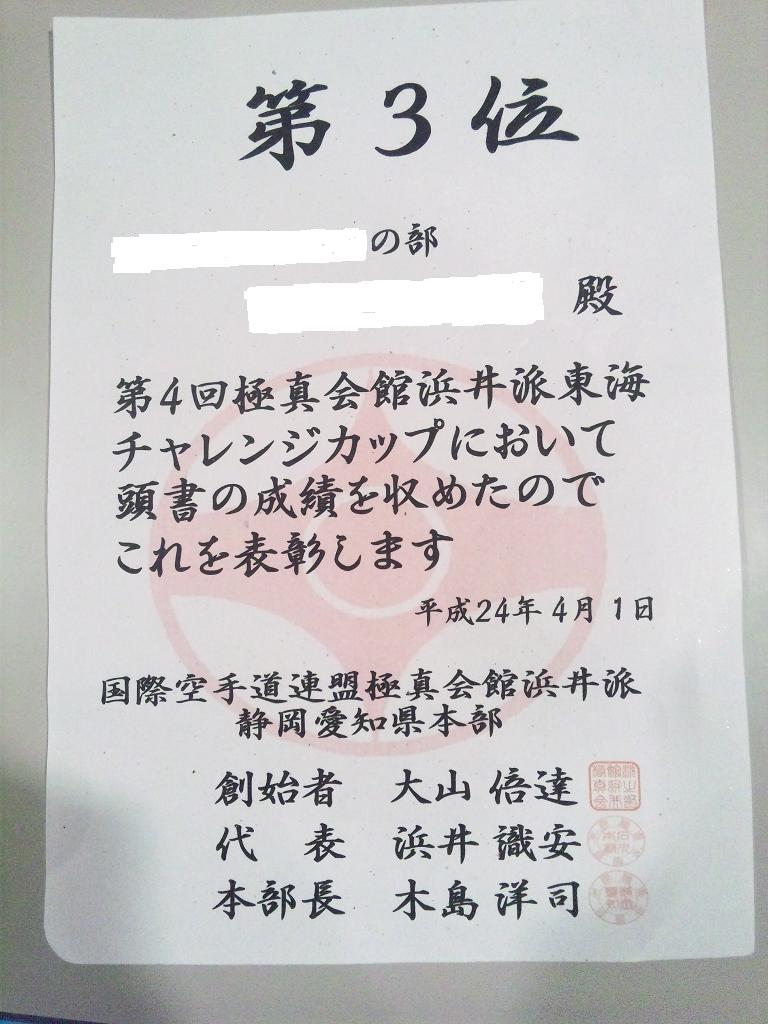 第3位
の部
殿
第4回極真会館浜井派東海
チャレンジカップにおいて
頭書の成績を収めたので
これを表彰します
平成24年4月1日
国際空手道連盟極真会館浜井派
静岡愛知県本部
創始者 大山 倍達
代 表 浜井 識安
本部長 木島 洋司